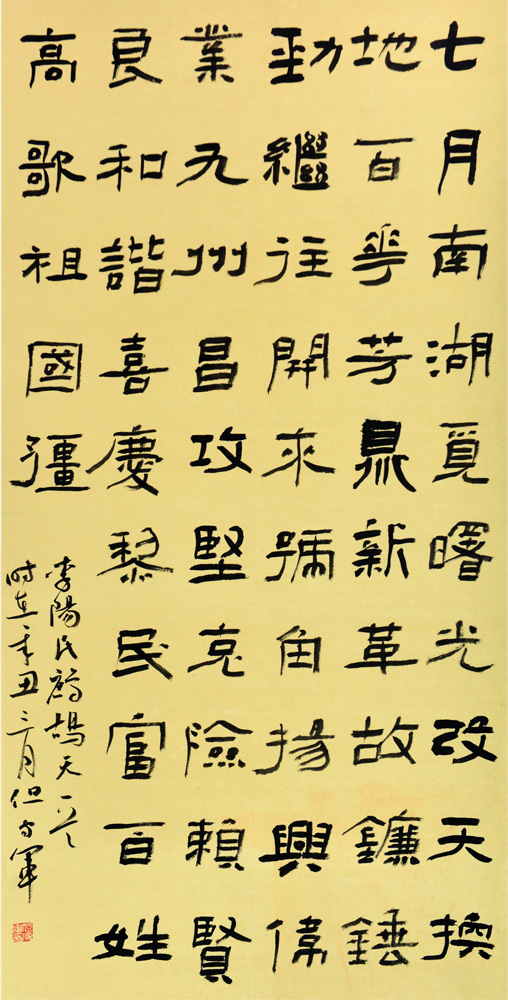 七月南湖覓曙光改天換
地百華芳鼎新革故鐮錘
勁繼往開來號角揚興偉
業九州昌攻堅克險賴賢
良和諧喜慶黎民富百姓
高歌祖國疆
李陽民鷓鴣天一首
时在辛丑三月但